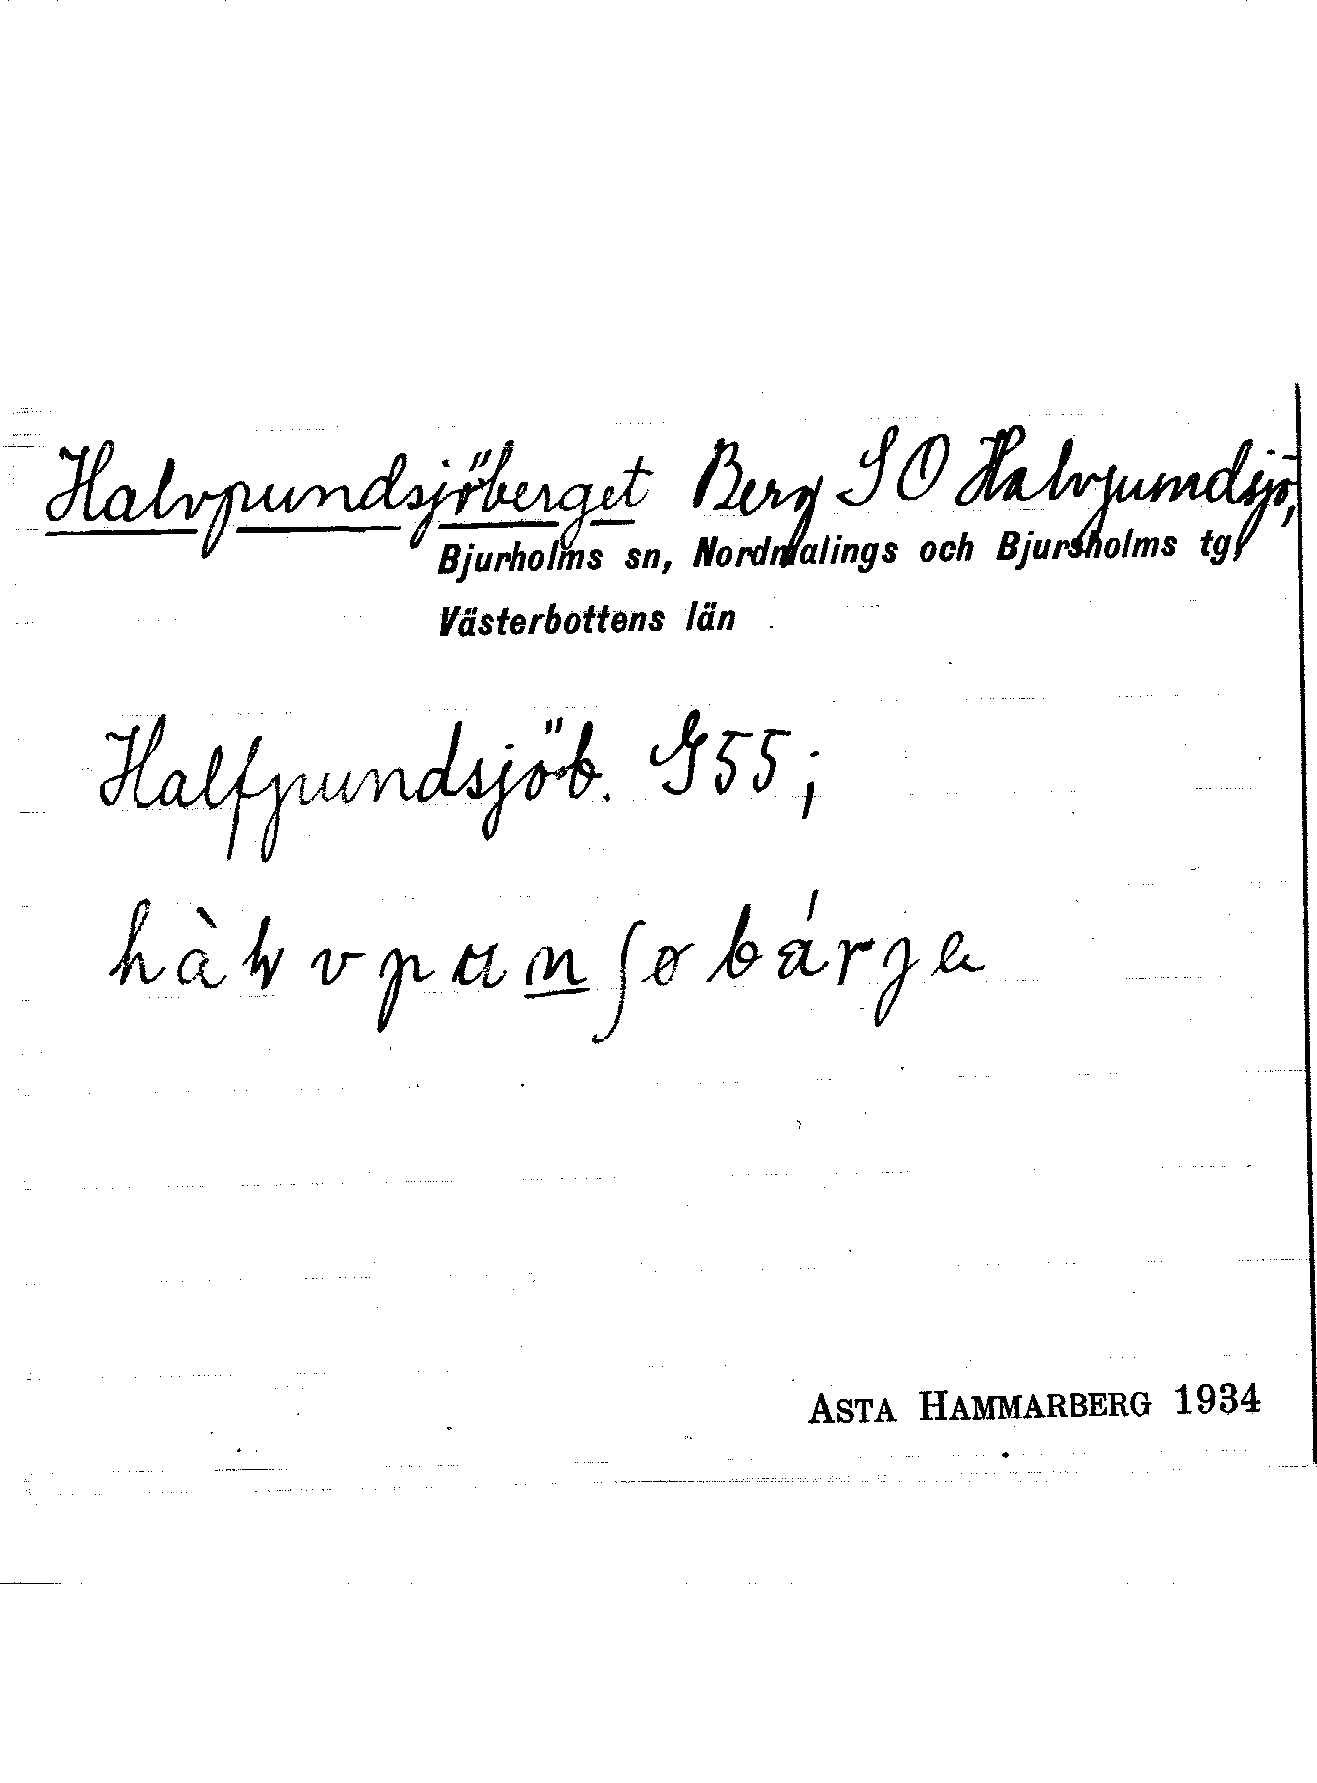 Halvpundsjöberget Berg SO Halvpundsjö,
Bjurholms sn, Nordmalings och Bjursholms tg,
Västerbottens län
Halfpundsjöb. G55;
ASTA HAMMARBERG 1934